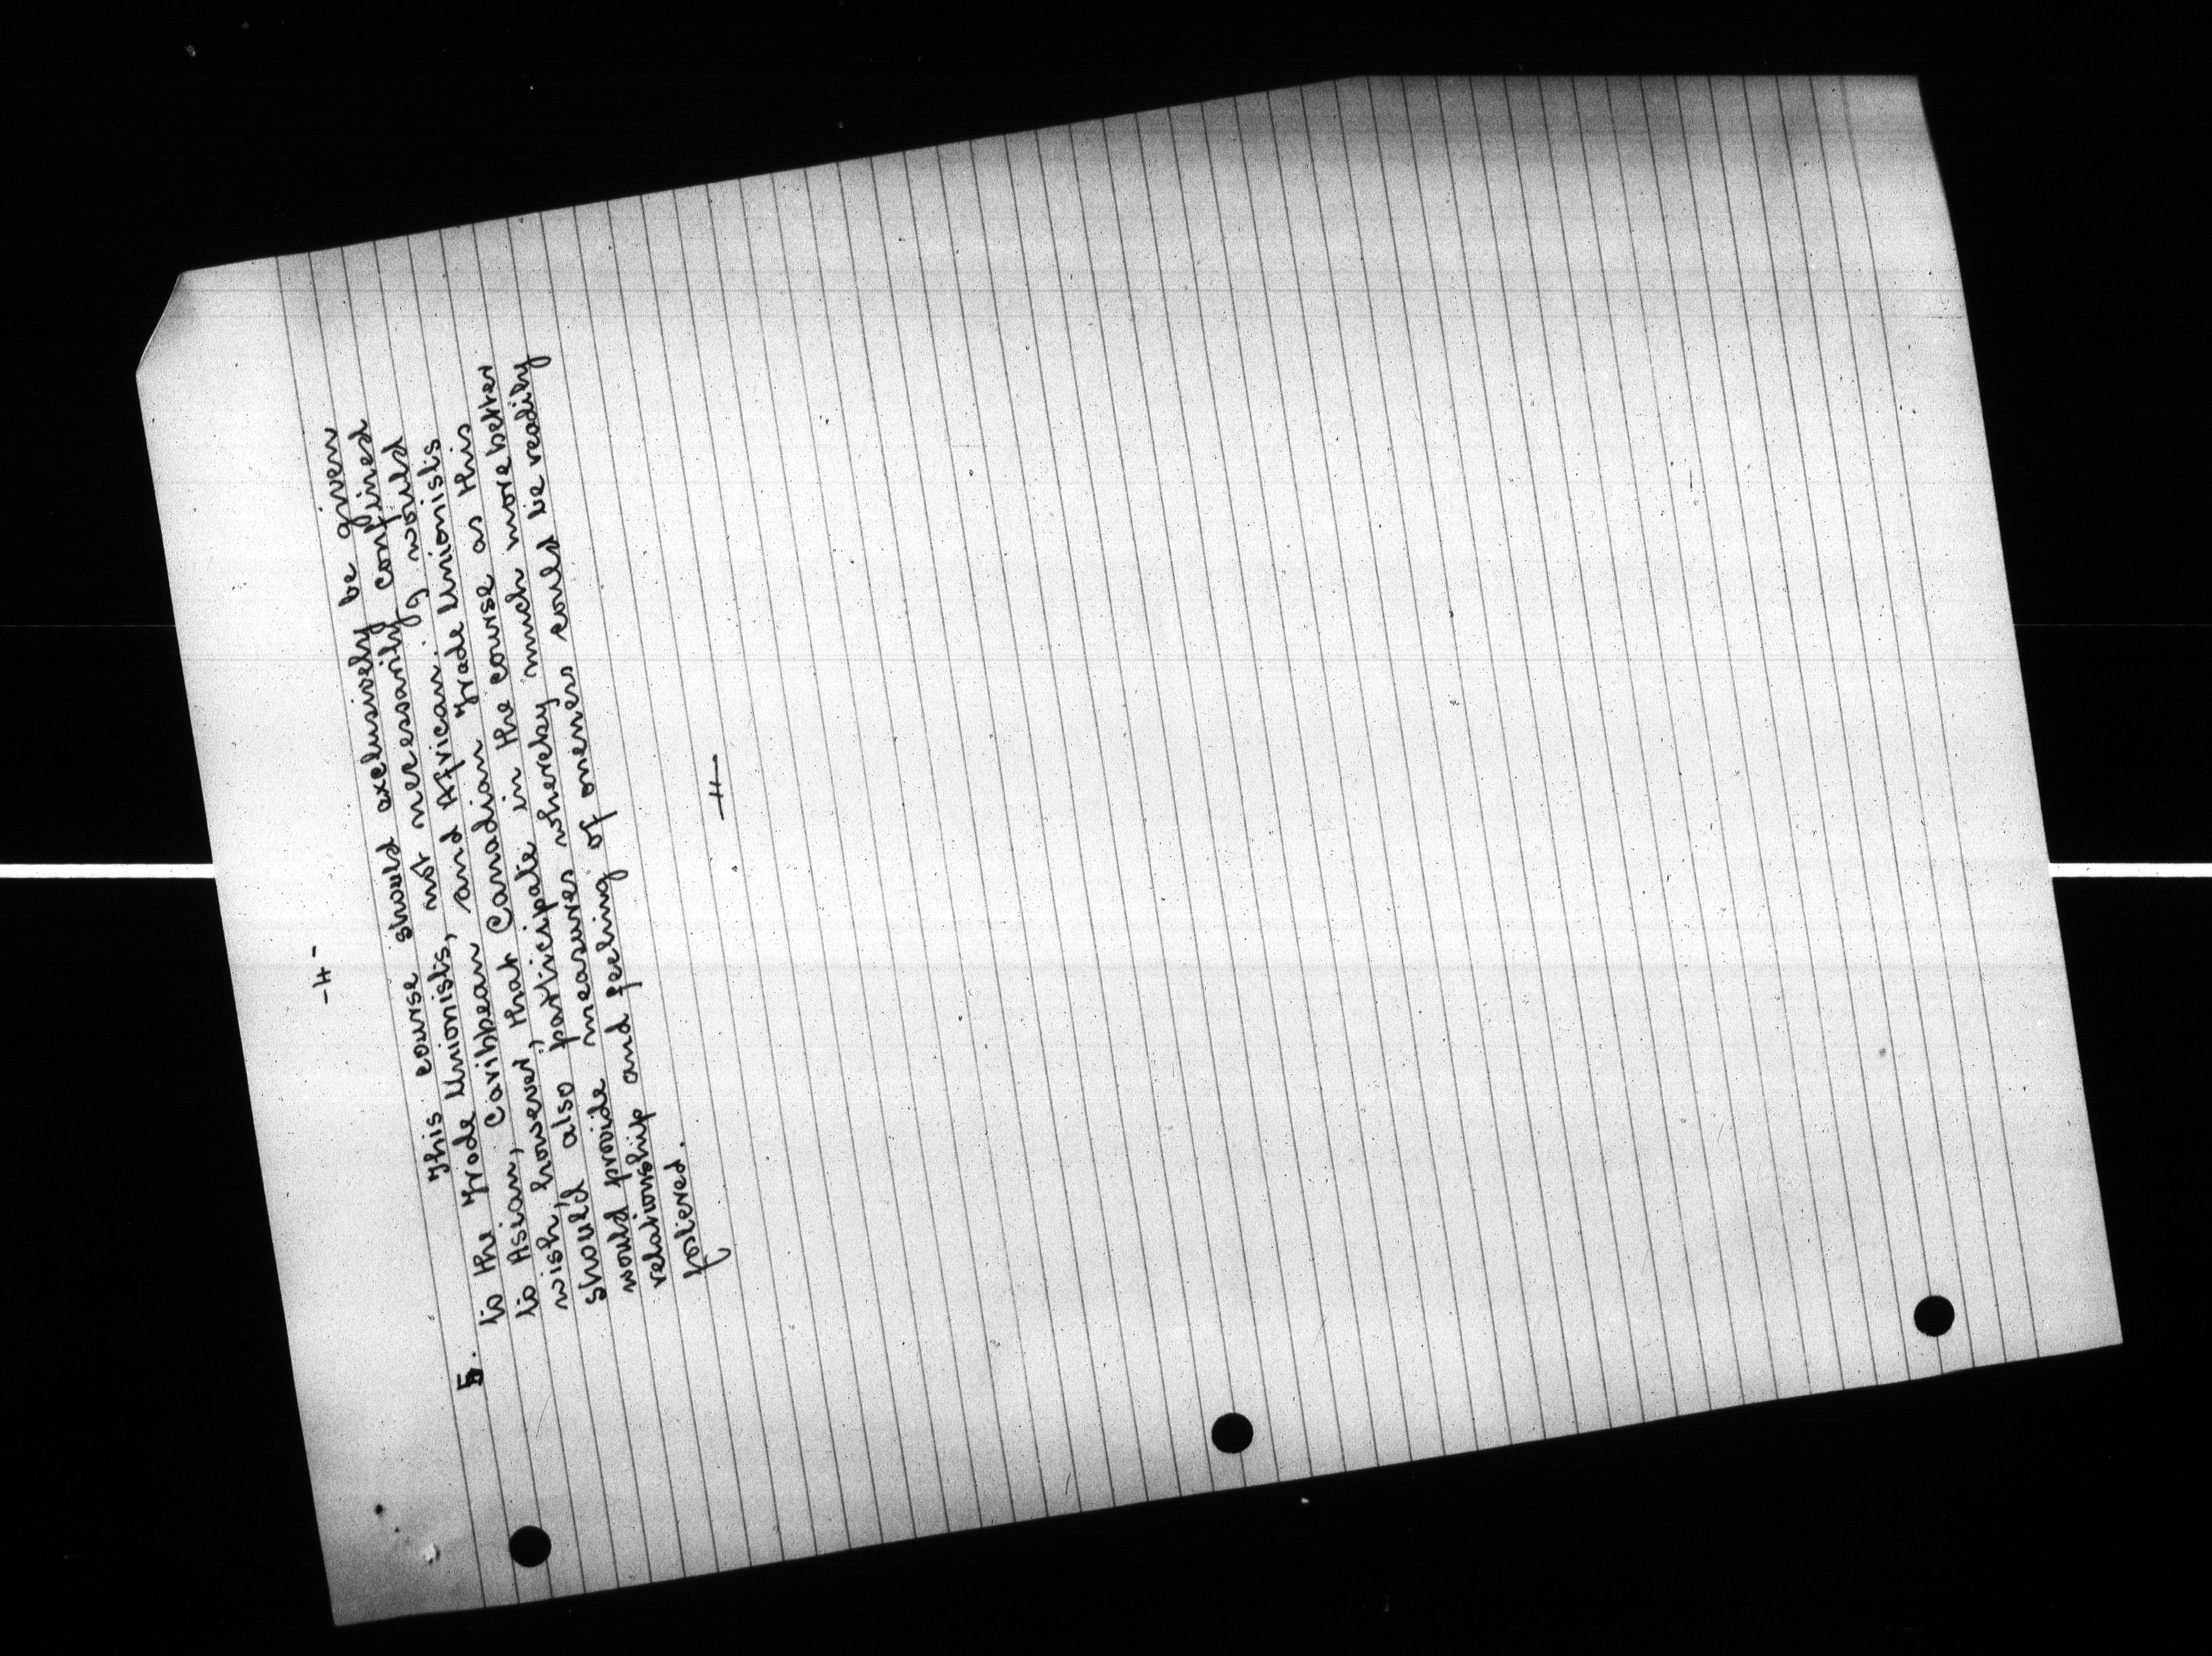 -4-
5. This course should exclusively be given
to the Trade Unionists, not necessarily confined
to Asian, Caribbean and African. I would
wish, however, that Canadian Trade Unionists
should also participate in the course as this
would provide measures whereby much more better
relationship and feeling of oneness could be readily
fostered.
—"—